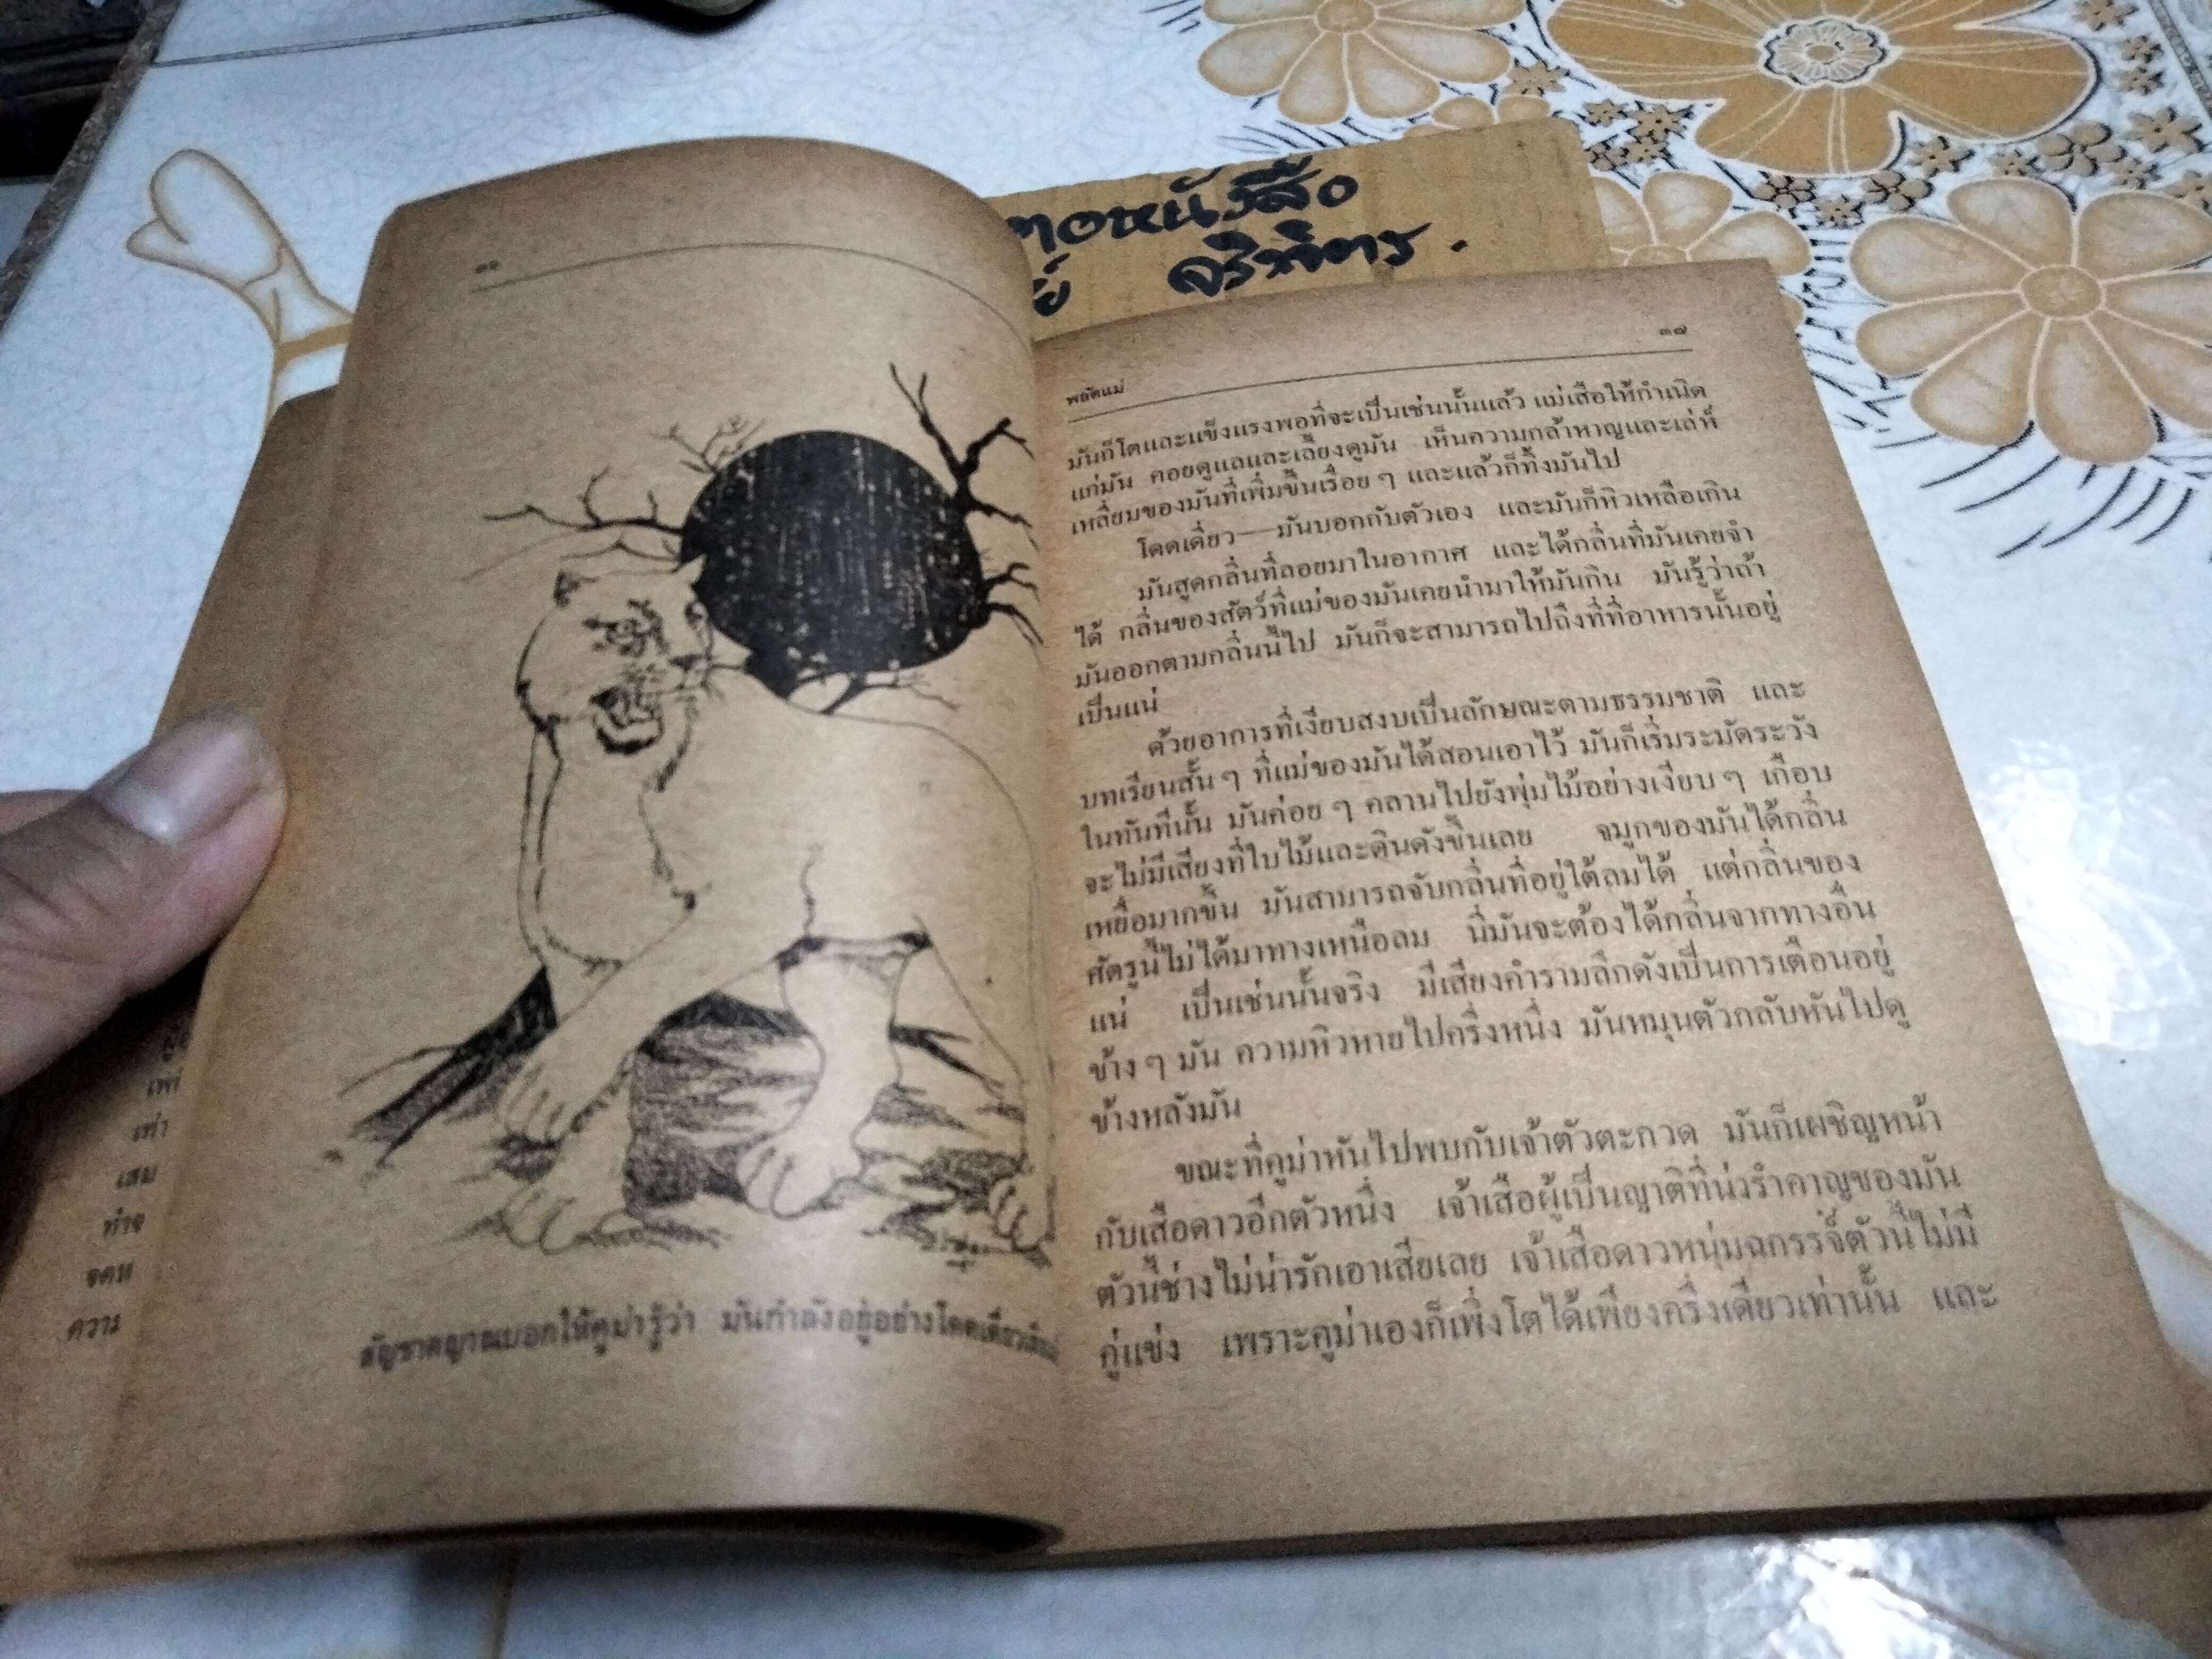 ตอหนังสือ
จริพิตร.
สัญชาตญาณบอกให้คูม่ารู้ว่า มันกำลังอยู่อย่างโดดเดี่ยว
เท่า
เสม
ความ
พลัดแม่ ๓๗
มันก็โตและแข็งแรงพอที่จะเป็นเช่นนั้นแล้ว แม่เสือให้กำเนิด
แก่มัน คอยดูแลและเลี้ยงดูมัน เห็นความกล้าหาญและเล่ห์
เหลี่ยมของมันที่เพิ่มขึ้นเรื่อย ๆ และแล้วก็ทิ้งมันไป
โดดเดี่ยว—มันบอกกับตัวเอง และมันก็หิวเหลือเกิน
มันสูดกลิ่นที่ลอยมาในอากาศ และได้กลิ่นที่มันเคยจำ
ได้ กลิ่นของสัตว์ที่แม่ของมันเคยนำมาให้มันกิน มันรู้ว่าถ้า
มันออกตามกลิ่นนี้ไป มันก็จะสามารถไปถึงที่ที่อาหารนั้นอยู่
เป็นแน่
ด้วยอาการที่เงียบสงบเป็นลักษณะตามธรรมชาติ และ
บทเรียนสั้น ๆ ที่แม่ของมันได้สอนเอาไว้ มันก็เริ่มระมัดระวัง
ในทันทีนั้น มันค่อย ๆ คลานไปยังพุ่มไม้อย่างเงียบ ๆ เกือบ
จะไม่มีเสียงที่ใบไม้และดินดังขึ้นเลย จมูกของมันได้กลิ่น
เหยื่อมากขึ้น มันสามารถจับกลิ่นที่อยู่ใต้ลมได้ แต่กลิ่นของ
ศัตรูนี้ไม่ได้มาทางเหนือลม นี่มันจะต้องได้กลิ่นจากทางอื่น
แน่ เป็นเช่นนั้นจริง มีเสียงคำรามลึกดังเป็นการเตือนอยู่
ข้าง ๆ มัน ความหิวหายไปครึ่งหนึ่ง มันหมุนตัวกลับหันไปดู
ข้างหลังมัน
ขณะที่คูม่าหันไปพบกับเจ้าตัวตะกวด มันก็เผชิญหน้า
กับเสือดาวอีกตัวหนึ่ง เจ้าเสือผู้เป็นญาติที่น่ารำคาญของมัน
ตัวนี้ช่างไม่น่ารักเอาเสียเลย เจ้าเสือดาวหนุ่มฉกรรจ์ตัวนี้ไม่มี
คู่แข่ง เพราะคูม่าเองก็เพิ่งโตได้เพียงครึ่งเดียวเท่านั้น และ